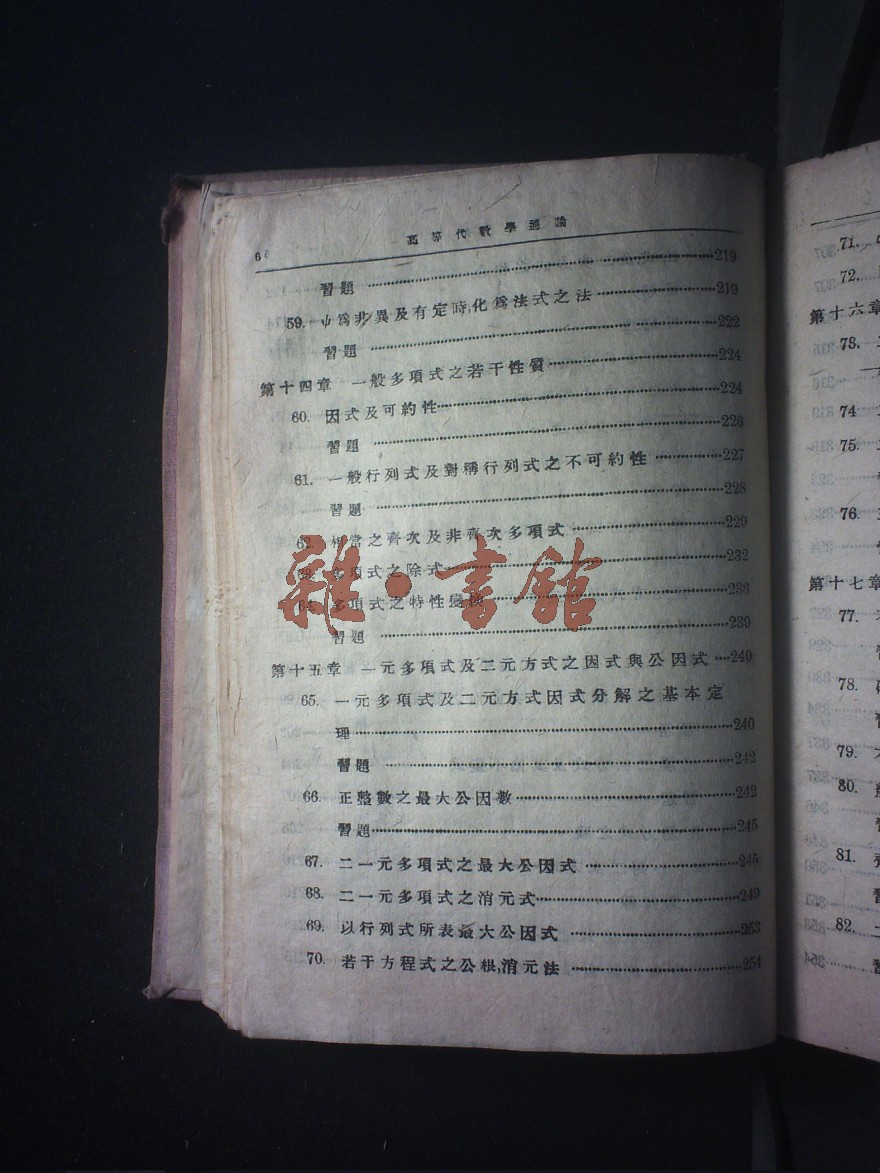 6
高等代數學通論
習題 219
59. ψ爲非異及有定時,化爲法式之法 219
習題 222
第十四章 一般多項式之若干性質 224
60. 因式及可約性 224
習題 226
61. 一般行列式及對稱行列式之不可約性 227
習題 228
62. 相當之齊次及非齊次多項式 229
63. 多項式之除式 232
64. 多項式之特性變換 236
習題 239
第十五章 一元多項式及二元方式之因式與公因式 240
65. 一元多項式及二元方式因式分解之基本定
理 240
習題 242
66. 正整數之最大公因數 242
習題 245
67. 二一元多項式之最大公因式 245
68. 二一元多項式之消元式 249
69. 以行列式所表最大公因式 253
70. 若干方程式之公根,消元法 254
雜·書館
71.
72.
第十六章
73.
74
75.
76.
第十七章
77.
習
78.
習
79.
80.
習
81.
習
82.
習